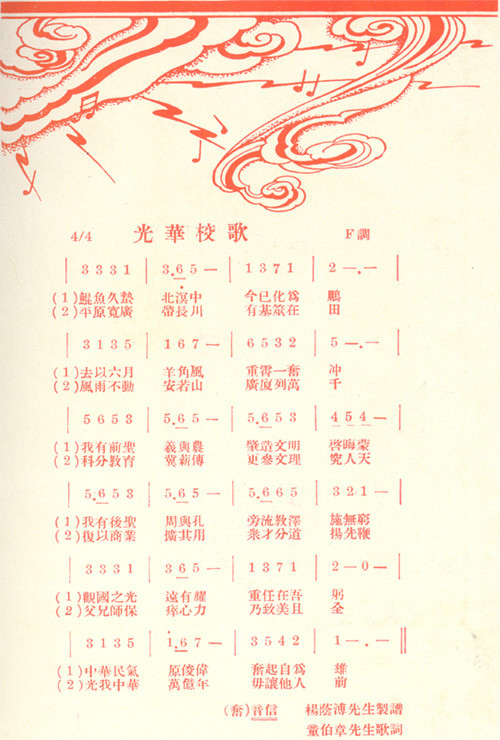 4/4 光華校歌 F調
| 3 3 3 1 | 3.6 5 — | 1 3 7 1 | 2 —.— |
(1)鯤魚久蟄 北溟中 今已化爲 鵬
(2)平原寬廣 帶長川 有基築在 田
| 3 1 3 5 | 1 6 7 — | 6 5 3 2 | 5 —.— |
(1)去以六月 羊角風 重霄一奮 冲
(2)風雨不動 安若山 廣廈列萬 千
| 5 6 5 3 | 5.6 5 — | 5.6 5 3 | 4 5 4 — |
(1)我有前聖 羲與農 肇造文明 啓晦蒙
(2)科分教育 冀薪傳 更參文理 究人天
| 5.6 5 3 | 5.6 5 — | 5.6 6 5 | 3 2 1 — |
(1)我有後聖 周與孔 旁流教澤 施無窮
(2)復以商業 擴其用 衆才分道 揚先鞭
| 3 3 3 1 | 3 6 5 — | 1 3 7 1 | 2 — 0 — |
(1)觀國之光 遠有耀 重任在吾 躬
(2)父兄師保 瘁心力 乃致美且 全
| 3 1 3 5 | 1.6 7 — | 3 5 4 2 | 1 —.— ||
(1)中華民氣 原俊偉 奮起自爲 雄
(2)光我中華 萬億年 毋讓他人 前
(奮)音信 楊蔭溥先生製譜
童伯章先生歌詞